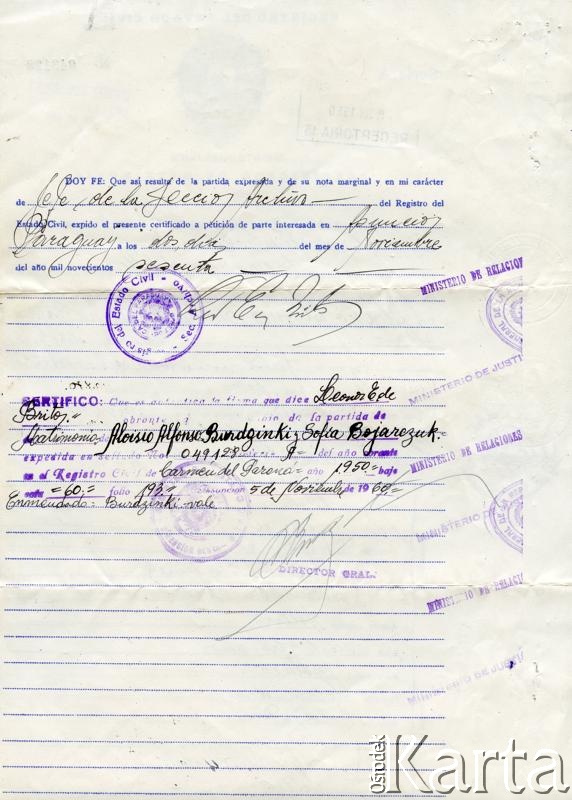 RECEPTORIA 15
DOY FE: Que así resulta de la partida expresada y de su nota marginal y en mi carácter
de Jefe de la Seccion Archivo del Registro del
Estado Civil, expido el presente certificado a petición de parte interesada en Asuncion
Paraguay a los dos dias del mes de Noviembre
del año mil novecientos sesenta
MINISTERIO DE RELACION
del Estado Civil
MINISTERIO DE JUSTI
CERTIFICO: Que es autentica la firma que dice Leonor E de
Britos obrante de la partida de
Matrimonio de Aloisio Alfonso Burdzinki y Sofia Bojarczuk.=
expedida en 049128 del año obrante
en el Registro Civil de Carmen del Parana= año 1950= bajo
acta =60= folio 193= Asuncion 5 de Noviembre de 1960=
Enmendado: Burdzinki vale
MINISTERIO DE RELACIONES
MINISTERIO DE
DIRECTOR GRAL.
MINISTERIO DE RELACI
MINISTERIO DE JUSTI
ośrodek Karta